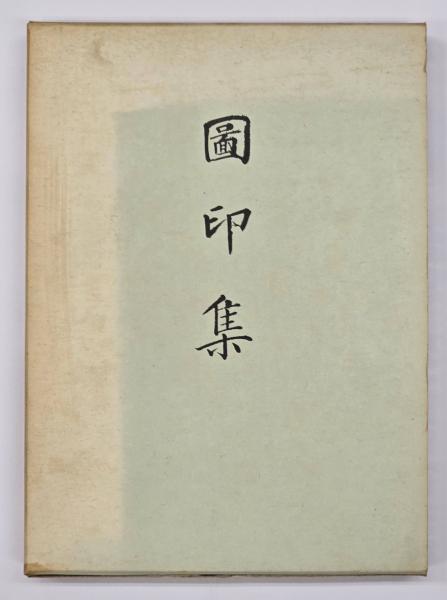 圖印集